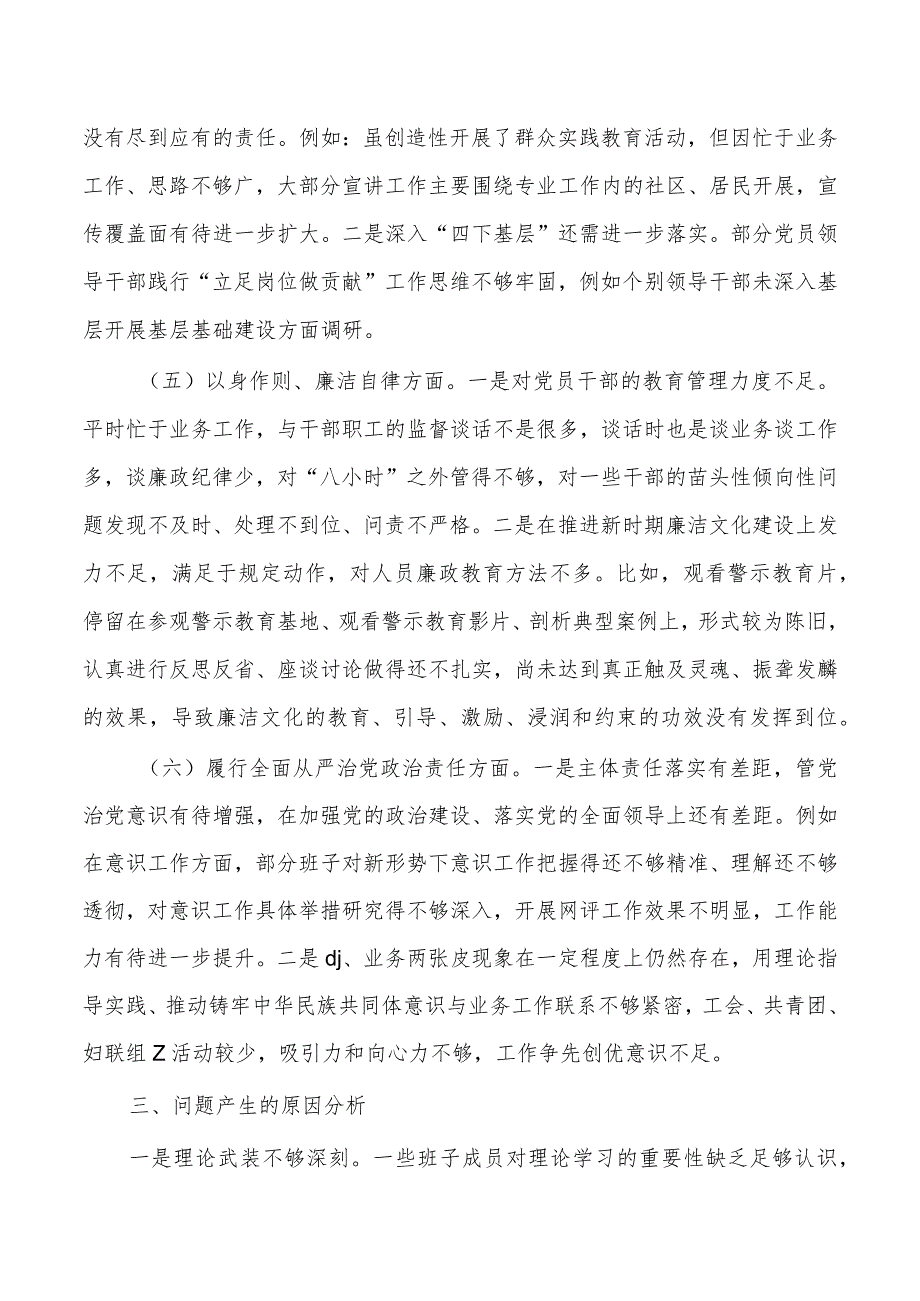 没有尽到应有的责任。例如：虽创造性开展了群众实践教育活动，但因忙于业务
工作、思路不够广，大部分宣讲工作主要围绕专业工作内的社区、居民开展，宣
传覆盖面有待进一步扩大。二是深入“四下基层”还需进一步落实。部分党员领
导干部践行“立足岗位做贡献”工作思维不够牢固，例如个别领导干部未深入基
层开展基层基础建设方面调研。
（五）以身作则、廉洁自律方面。一是对党员干部的教育管理力度不足。
平时忙于业务工作，与干部职工的监督谈话不是很多，谈话时也是谈业务谈工作
多，谈廉政纪律少，对“八小时”之外管得不够，对一些干部的苗头性倾向性问
题发现不及时、处理不到位、问责不严格。二是在推进新时期廉洁文化建设上发
力不足，满足于规定动作，对人员廉政教育方法不多。比如，观看警示教育片，
停留在参观警示教育基地、观看警示教育影片、剖析典型案例上，形式较为陈旧，
认真进行反思反省、座谈讨论做得还不扎实，尚未达到真正触及灵魂、振聋发麟
的效果，导致廉洁文化的教育、引导、激励、浸润和约束的功效没有发挥到位。
（六）履行全面从严治党政治责任方面。一是主体责任落实有差距，管党
治党意识有待增强，在加强党的政治建设、落实党的全面领导上还有差距。例如
在意识工作方面，部分班子对新形势下意识工作把握得还不够精准、理解还不够
透彻，对意识工作具体举措研究得不够深入，开展网评工作效果不明显，工作能
力有待进一步提升。二是 dj、业务两张皮现象在一定程度上仍然存在，用理论指
导实践、推动铸牢中华民族共同体意识与业务工作联系不够紧密，工会、共青团、
妇联组 Z 活动较少，吸引力和向心力不够，工作争先创优意识不足。
三、问题产生的原因分析
一是理论武装不够深刻。一些班子成员对理论学习的重要性缺乏足够认识，